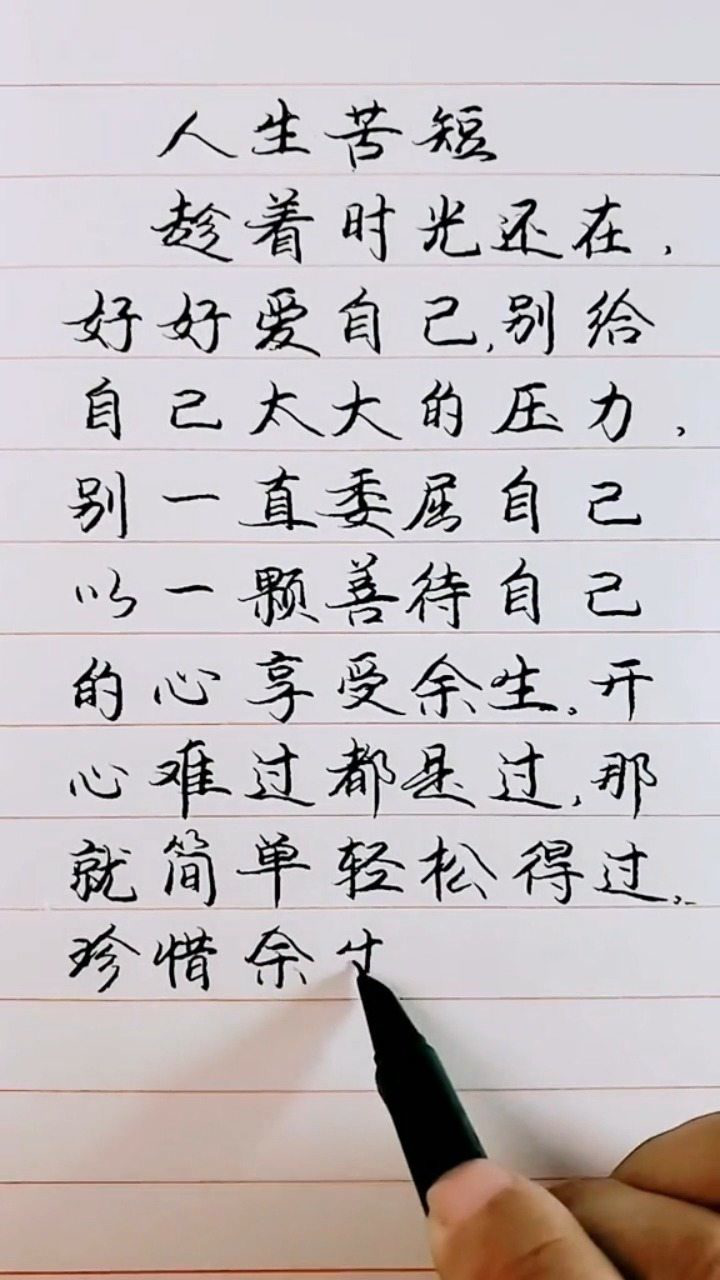 人生苦短
趁着时光还在,
好好爱自己,别给
自己太大的压力,
别一直委屈自己
以一颗善待自己
的心享受余生。开
心难过都是过,那
就简单轻松得过。
珍惜余